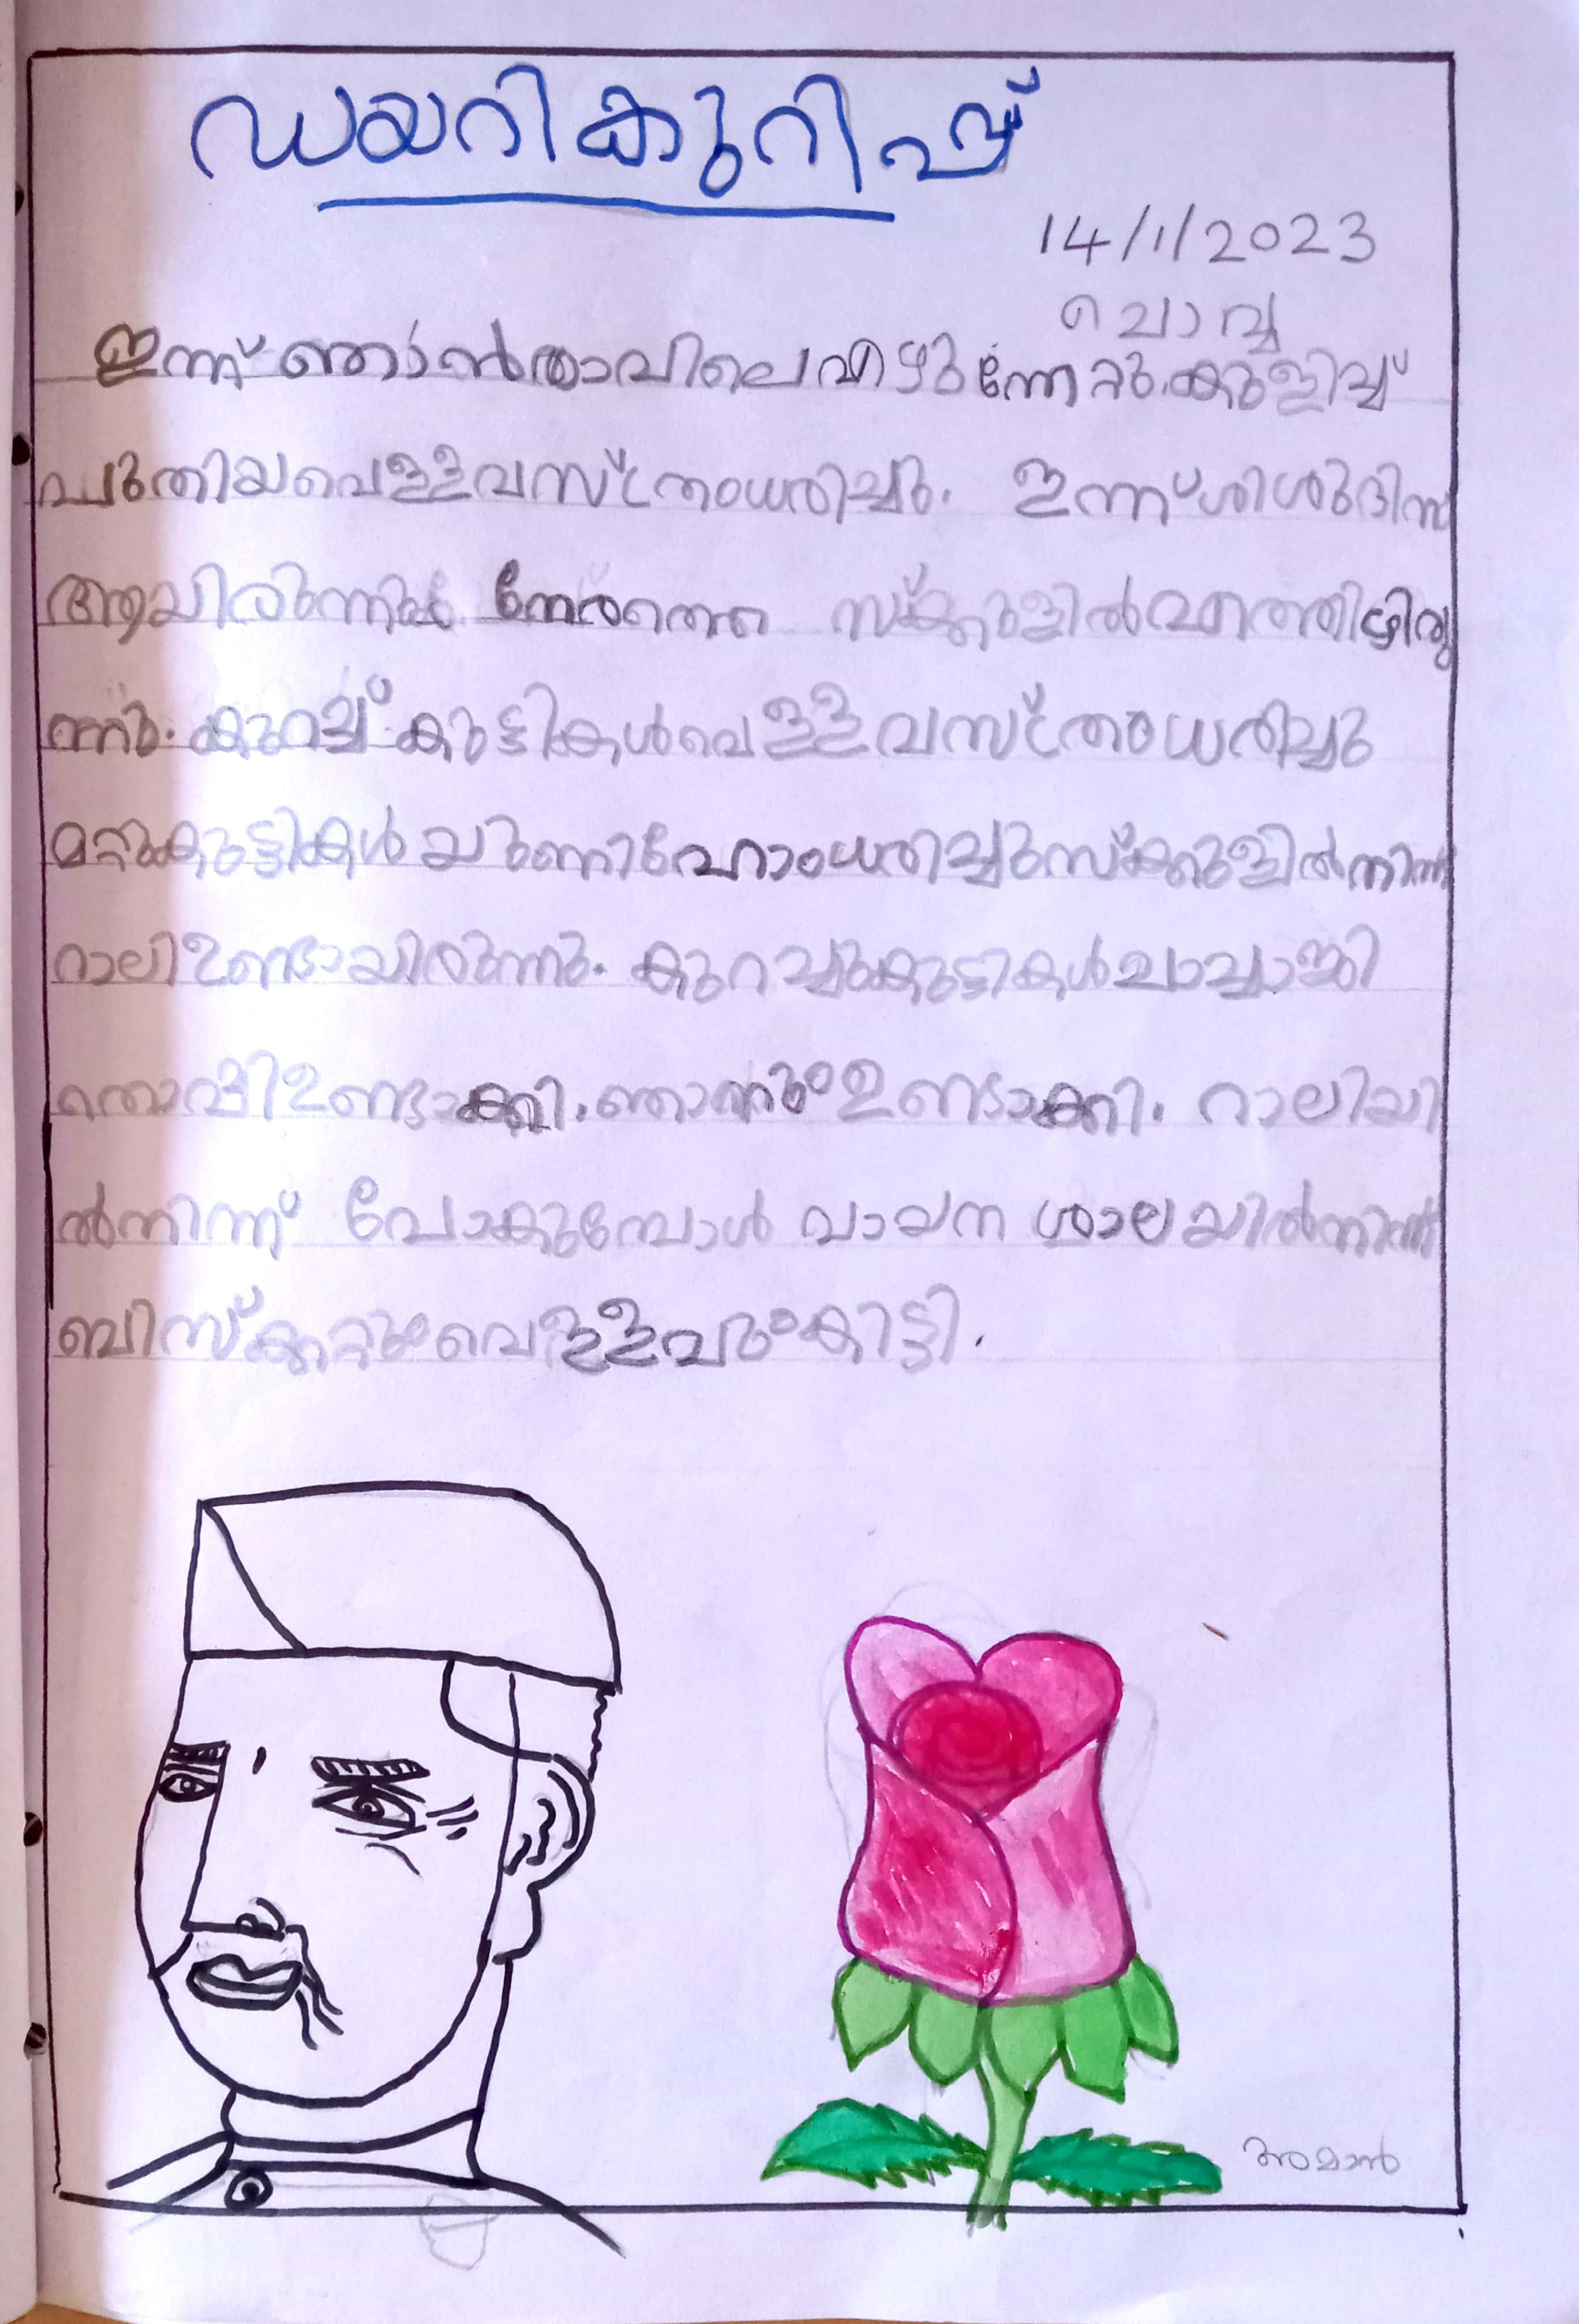 ഡയറികുറിപ്പ്
14/1/2023
ചൊവ്വ
ഇന്ന് ഞാൻ രാവിലെ എഴുന്നേറ്റു. കുളിച്ച്
പുതിയ വെള്ള വസ്ത്രം ധരിച്ചു. ഇന്ന് ശിശുദിന
ആയിരുന്നു നേരത്തെ സ്ക്കുളിൽ എത്തിഴിരു
ന്നു. കുറച്ച് കുട്ടികൾ വെള്ള വസ്ത്രം ധരിച്ചു
മറ്റു കുട്ടികൾ യുണിഫോം ധരിച്ചു സ്ക്കുളിൽ നിന്ന്
റാലി ഉണ്ടായിരുന്നു. കുറച്ചു കുട്ടികൾ ചാച്ചാജി
തൊപ്പി ഉണ്ടാക്കി. ഞാനും ഉണ്ടാക്കി. റാലിയി
ൽനിന്ന് പോകുമ്പോൾ വായന ശാലയിൽ നിന്ന്
ബിസ്ക്കറ്റും വെള്ളവും കിട്ടി.
അമാൻ